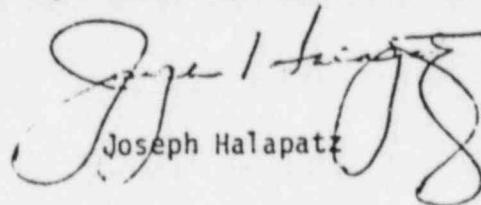 Joseph Halapatz